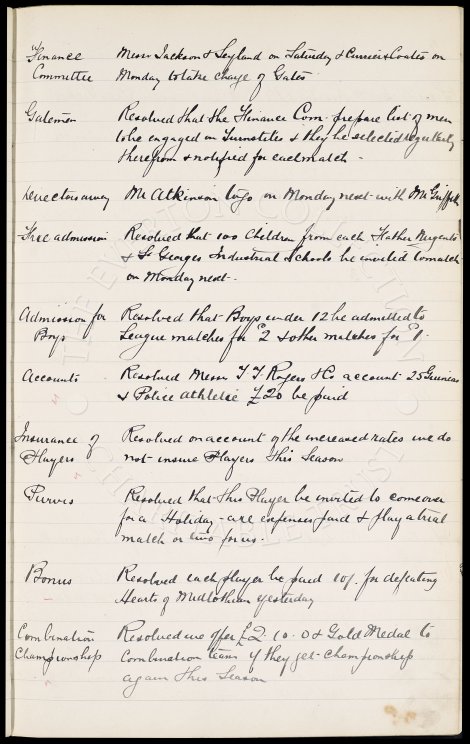 Finance Messrs Jackson & Leyland on Saturday & Currier & Coates on
Committee Monday to take charge of Gates
Gatemen Resolved that the Finance Com. prepare list of men
to be engaged on Turnstiles & they be selected regularly
therefrom & notified for each match.
Directors away Mr Atkinson to go on Monday next with Mr Griffith
Free admission Resolved that 100 Children from each Father Nugents
& St Georges Industrial Schools be invited to match
on Monday next.
Admission for Resolved that Boys under 12 be admitted to
Boys League matches for 2 & other matches for 1.
Accounts Resolved Messrs T. J. Rogers & Co account 25 Guineas
& Police Athletic £20 be paid
Insurance of Resolved on account of the increased rates we do
Players not insure Players this Season
Purvis Resolved that this Player be invited to come over
for a Holiday - are expenses paid & play a trial
match or two for us.
Bonus Resolved each player be paid 10/. for defeating
Hearts of Midlothian yesterday
Combination Resolved we offer £2.10.0 & Gold Medal to
Championship Combination team if they get Championship
again this Season
EVERTON COLLECTION